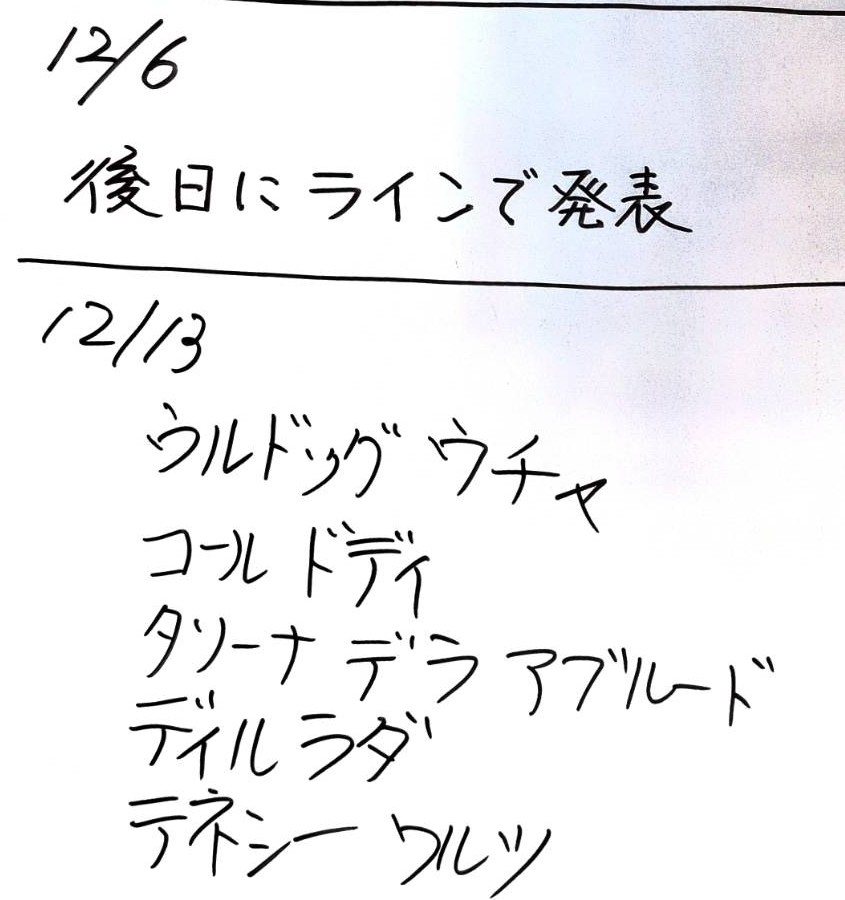 12/6
後日にラインで発表
12/13
ウルドッグ ウチャ
コール ドディ
タリーナ デラ アブルード
ディル ラダ
テネシー ワルツ